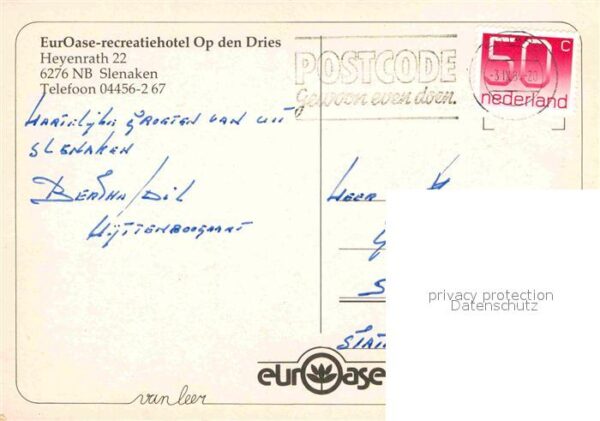 EurOase-recreatiehotel Op den Dries
Heyenrath 22
6276 NB Slenaken
Telefoon 04456-2 67
POSTCODE
gewoon even doen.
50 c
nederland
Hartelijke groeten van uit
Slenaken
Bertha/Dil
Uyttenboogaart
Heer
privacy protection
Datenschutz
eurOase
van leer